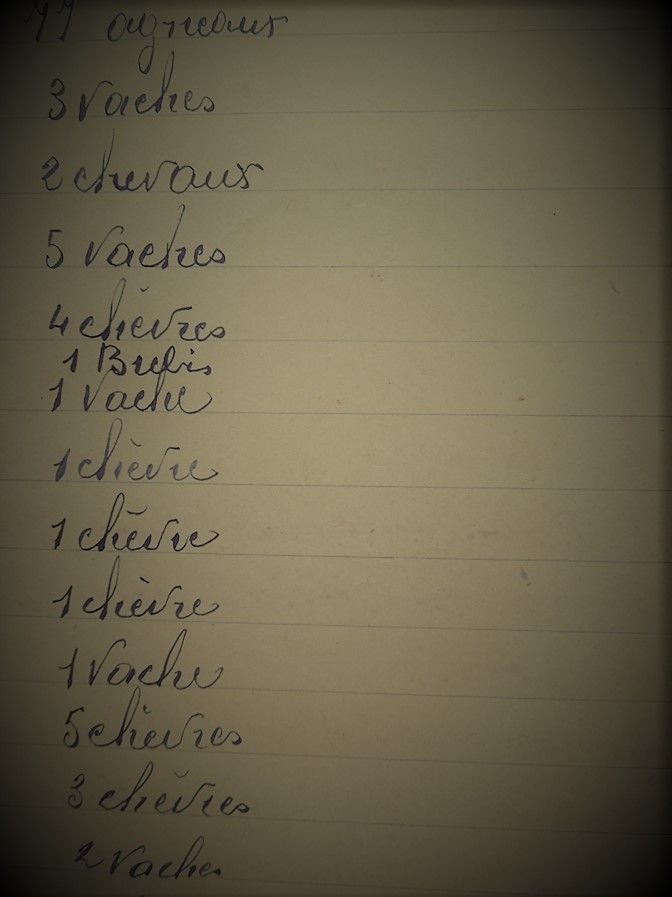 77 agneaux
3 Vaches
2 chevaux
5 Vaches
4 chèvres
1 Brebis
1 Vache
1 chèvre
1 chèvre
1 chèvre
1 Vache
5 chèvres
3 chèvres
2 Vaches